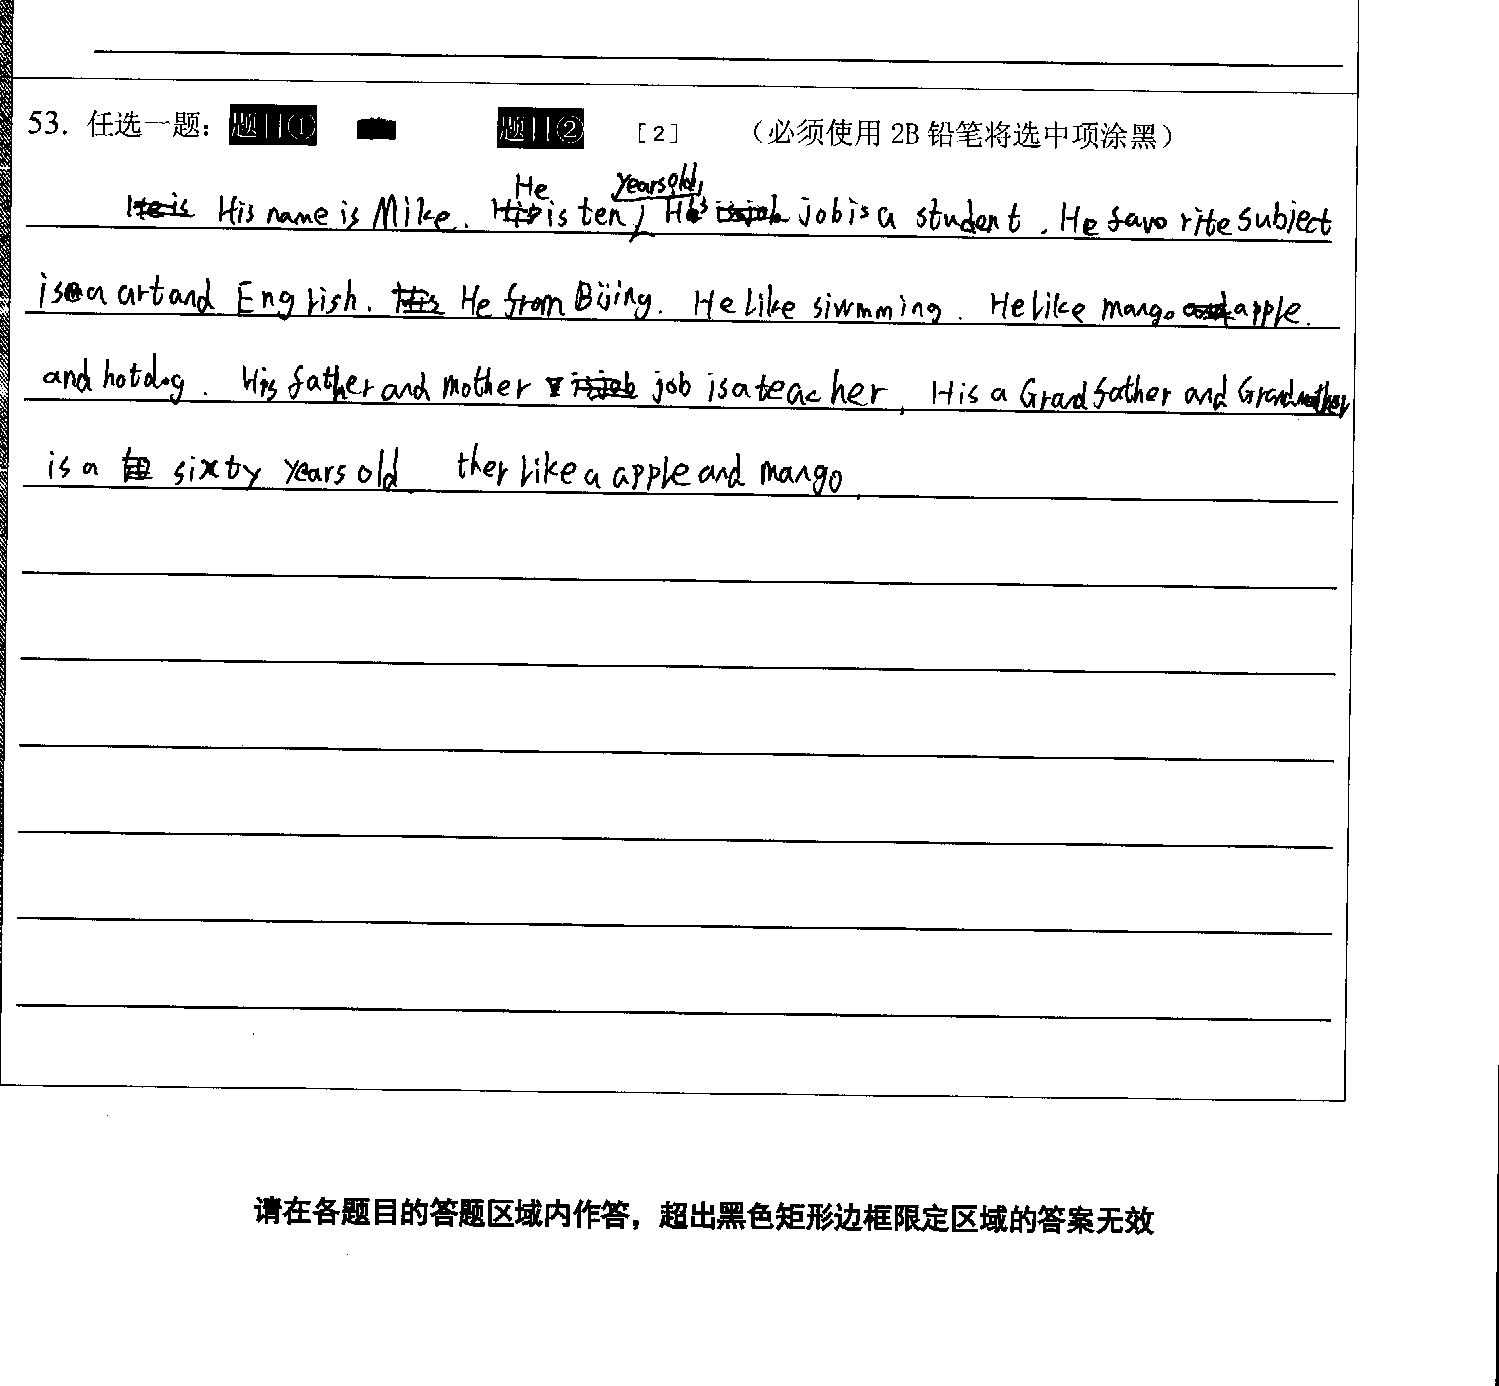 53. 任选一题： 题目① 题目② [2] （必须使用 2B 铅笔将选中项涂黑）
His name is Mike. He is ten years old, His job is a student. He favorite subject
is a art and English. He from Bijing. He like siwmming. He like mango apple.
and hotdog. His father and mother job is a teacher. His a Grandfather and Grandmother
is a sixty years old. ther like a apple and mango.
请在各题目的答题区域内作答，超出黑色矩形边框限定区域的答案无效